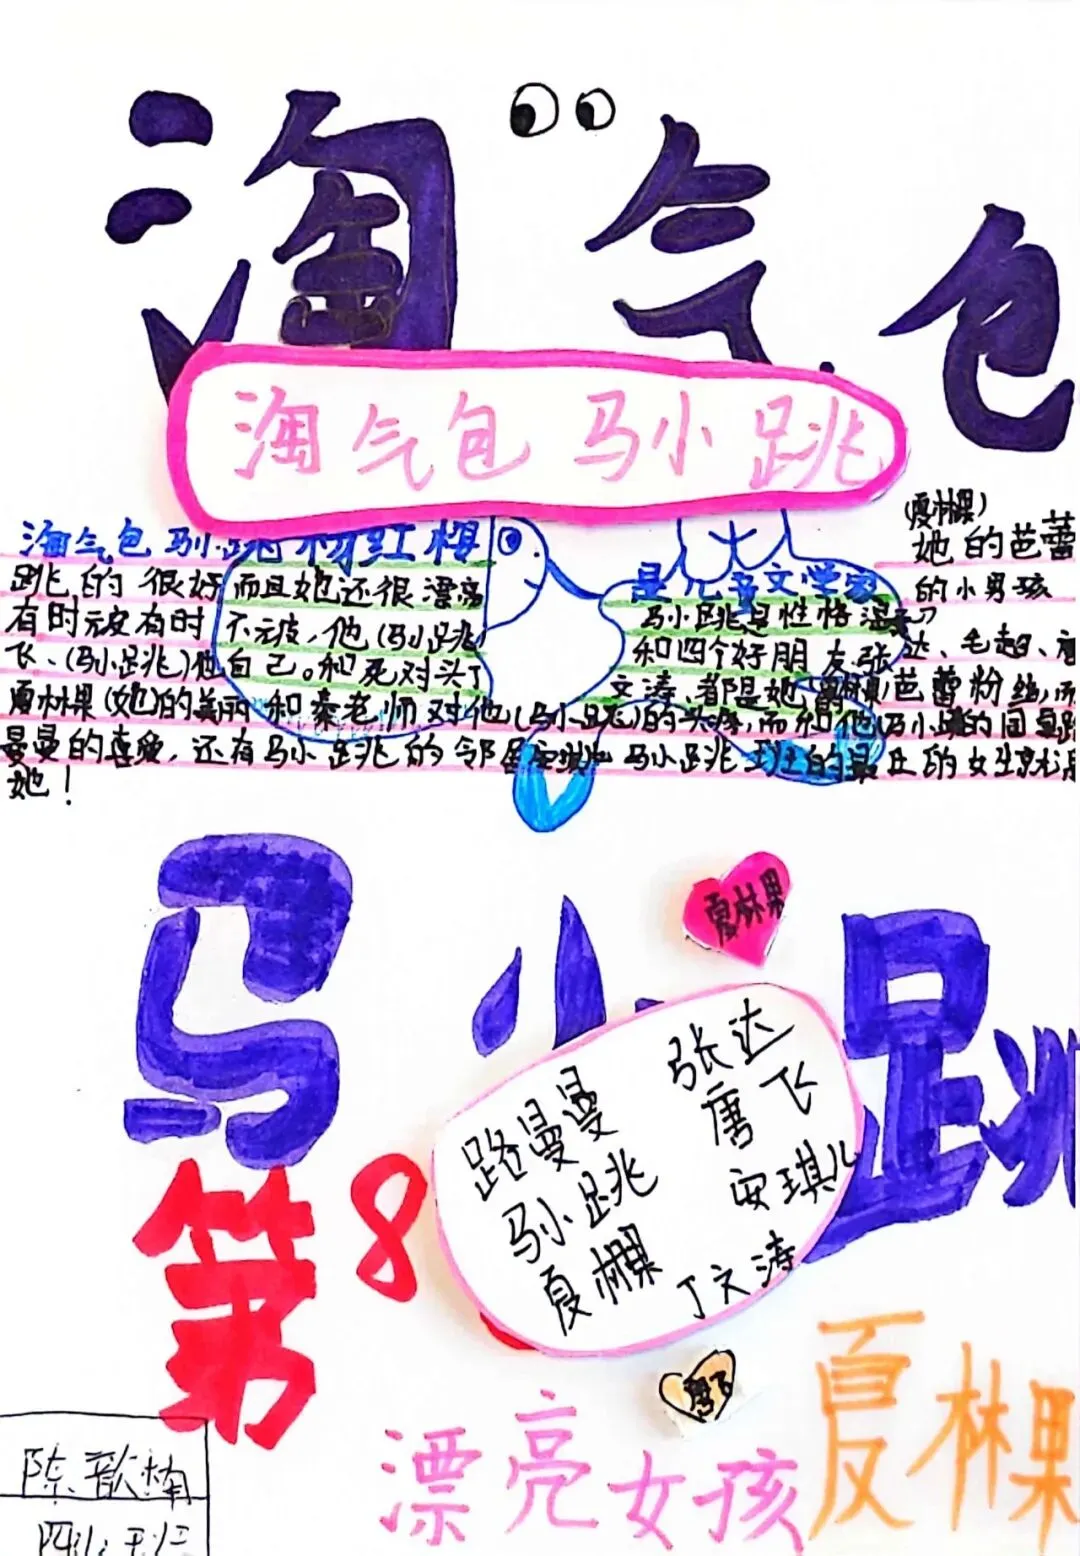 淘气包
淘气包 马小跳
(夏林果)
淘气包马小跳 杨红樱 是儿童文学家 她的芭蕾
跳的很好 而且她还很漂亮 的小男孩
有时元皮有时 不元皮,他(马小跳) 马小跳是性格
飞、(马小跳)他自己。和死对头丁 和四个好朋友张达、毛超、
文涛、都是她 芭蕾粉丝,而
夏林果(她)的美丽和秦老师对他(马小跳)的 而和他(马小跳)的同桌路
曼曼的喜爱,还有马小跳的邻居 马小跳 班上的最 的女生就是
她!
马小跳
夏林果
路曼曼 张达
马小跳 唐飞
夏林果 安琪儿
丁文涛
第8
漂亮女孩夏林果
陈歆楠